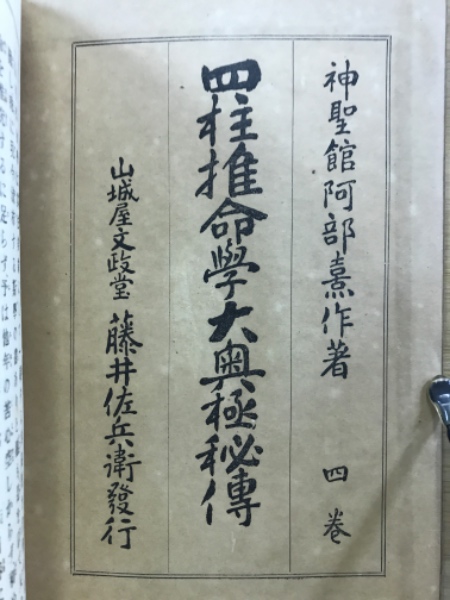 神聖館阿部熹作著 四卷
四柱推命學大奧極秘傳
山城屋文政堂 藤井佐兵衛發行